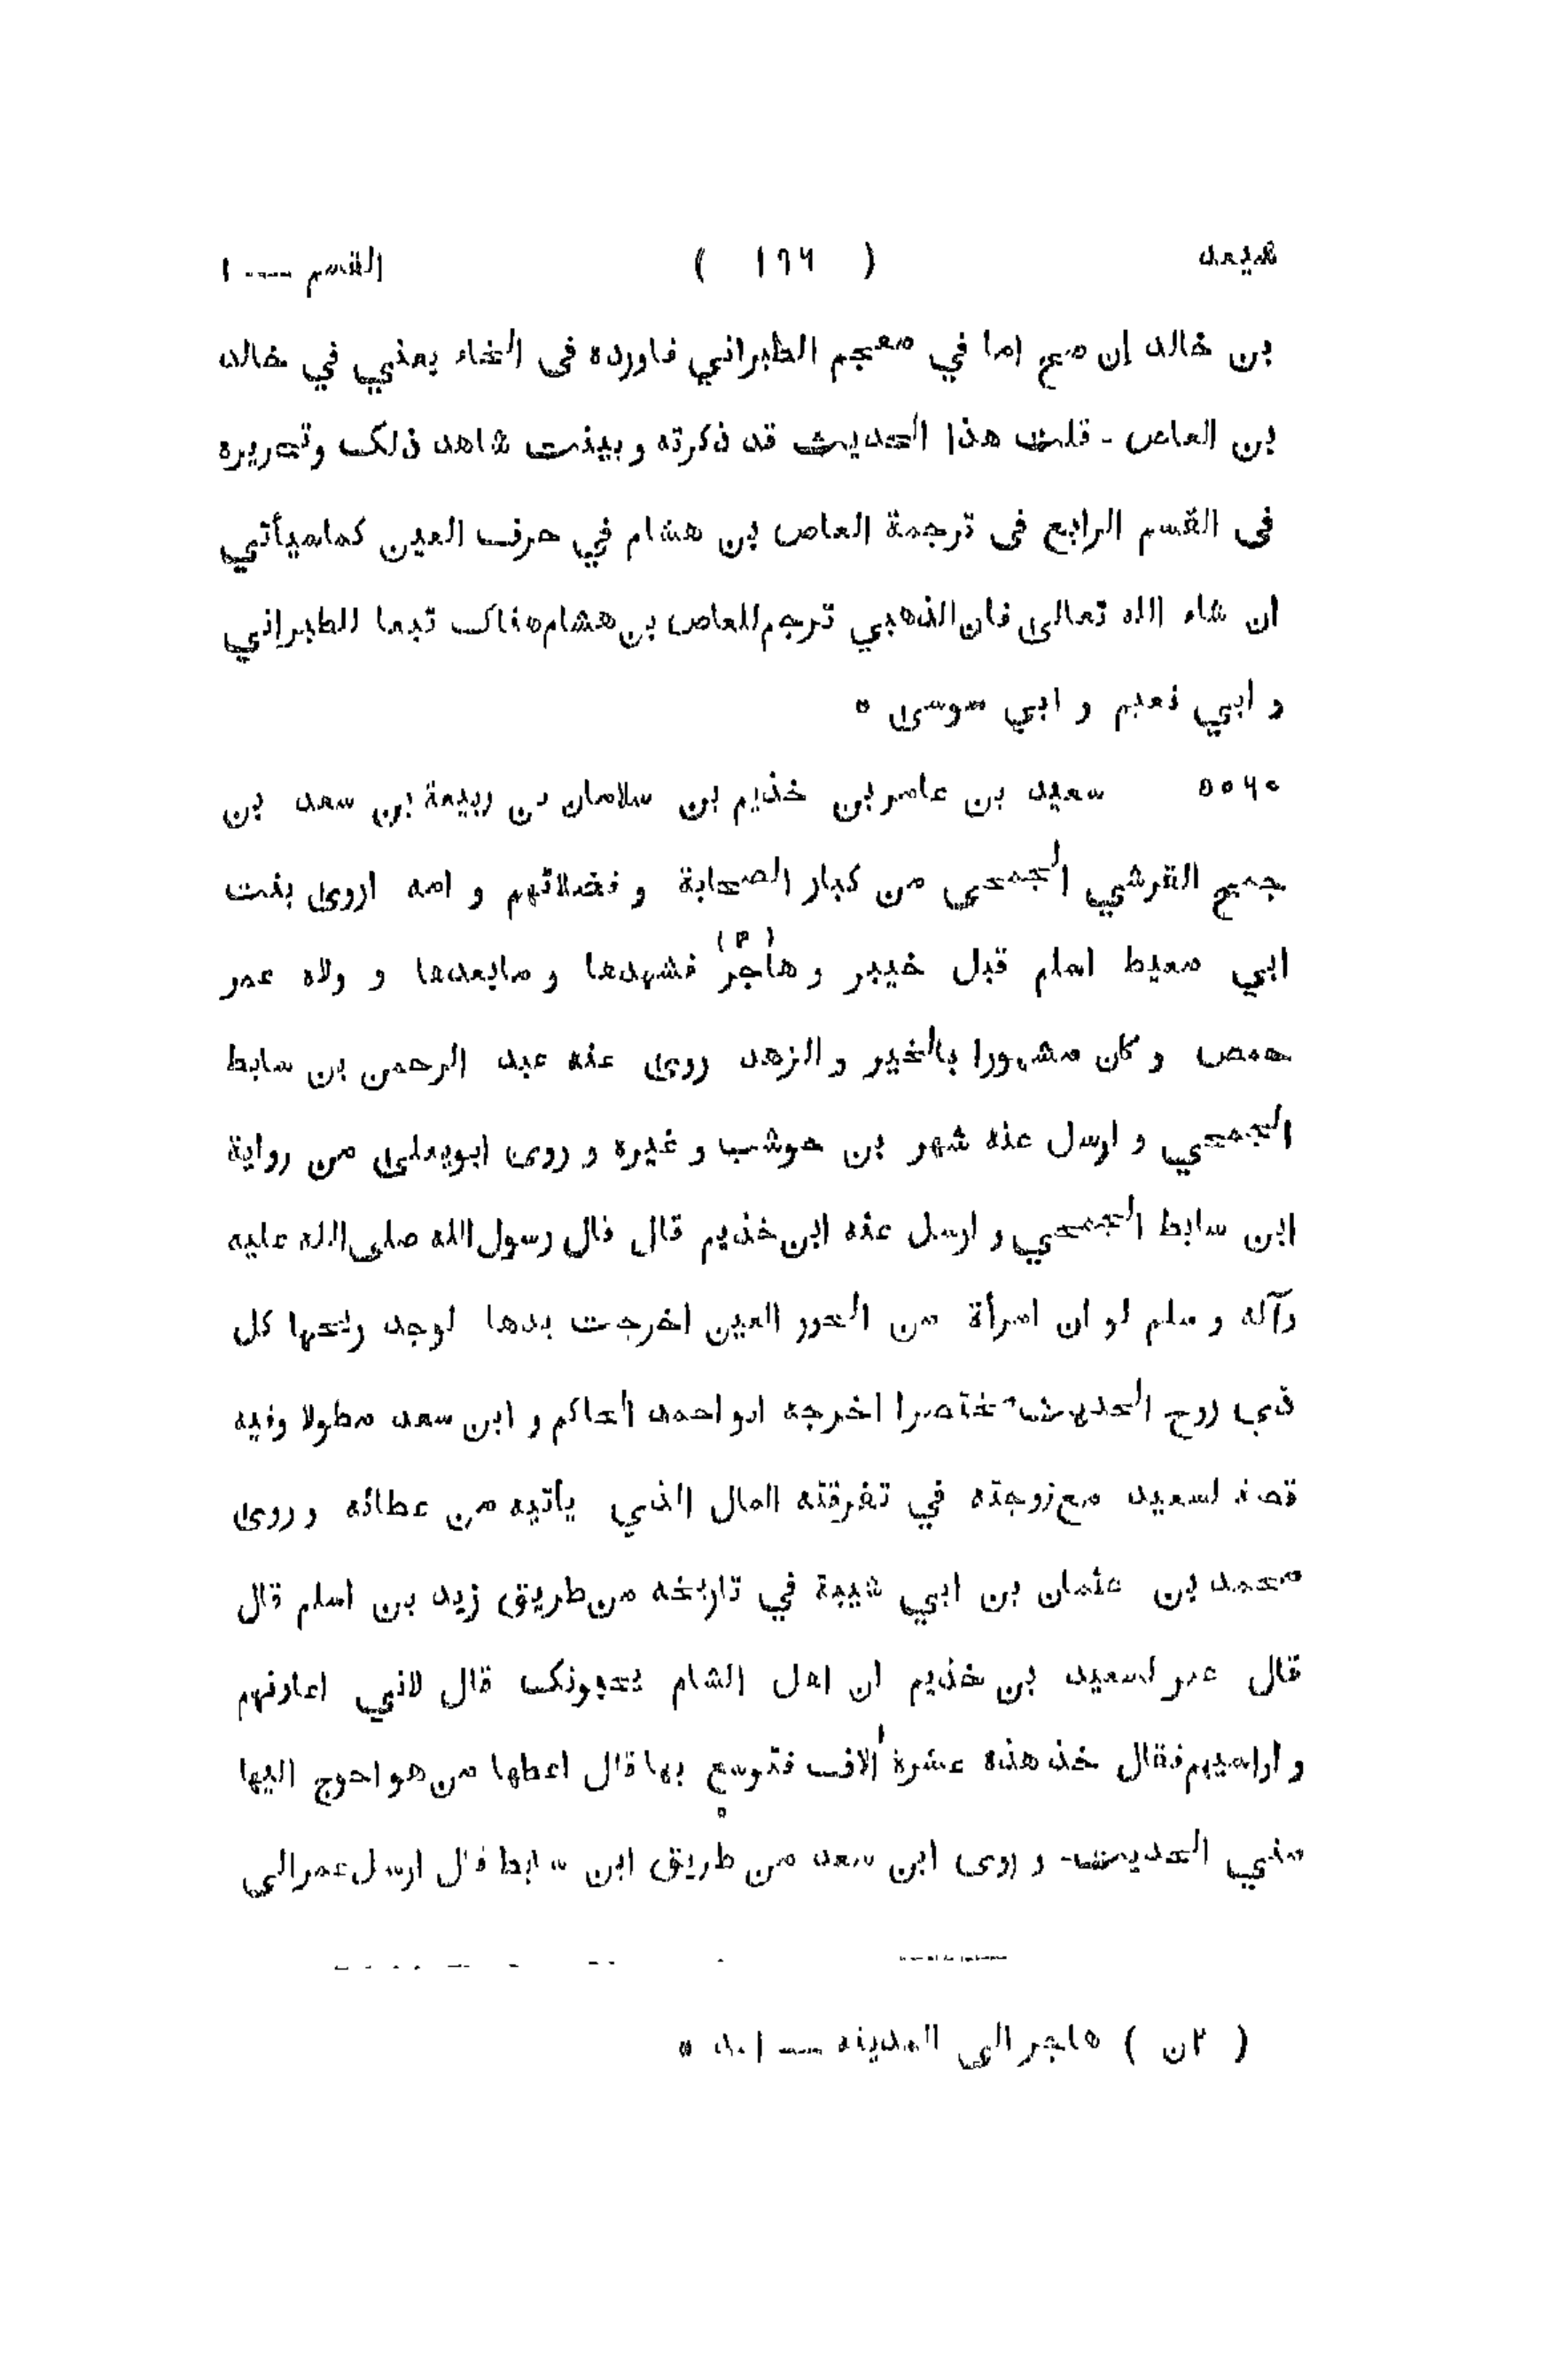 القسم — ١ ( ١٩٦ )
بن خالد إن صح اما في معجم الطبراني فاورده فى الخاء يعني في خالد
بن العاص - قلت هذا الحديث قد ذكرته و بينت شاهد ذلك وتحريره
فى القسم الرابع فى ترجمة العاص بن هشام في حرف العين كماسيأتي
ان شاء الله تعالى فان الذهبي ترجم للعاص بن هشام هناك تبعا للطبراني
و ابي نعيم و ابي موسى *
سعيد بن عامر بن خذيم بن سلامان بن ربيعة بن سعد بن
جميح القرشي الجمحى من كبار الصحابة و فضلائهم و امه اروى بنت
ابي معيط اسلم قبل خيبر و هاجر (٢) فشهدها و مابعدها و ولاه عمر
حمص و كان مشهورا بالخير و الزهد روى عنه عبد الرحمن بن سابط
الجمحي و ارسل عنه شهر بن حوشب و غيره و روى ابويعلى من رواية
ابن سابط الجمحي و ارسل عنه ابن خذيم قال قال رسول الله صلى الله عليه
وآله و سلم لو ان امرأة من الحور العين اخرجت يدها لوجد ريحها كل
ذي روح الحديث مختصرا اخرجه ابو احمد الحاكم و ابن سعد مطولا وفيه
قصة لسعيد مع زوجته في تفرقته المال الذي يأتيه من عطائه و روى
محمد بن عثمان بن ابي شيبة في تاريخه من طريق زيد بن اسلم قال
قال عمر لسعيد بن خذيم ان اهل الشام يحبونك قال لاني اعاونهم
و اواسيهم فقال خذ هذه عشرة آلاف فتوسع بها قال اعطها من هو احوج اليها
مني الحديث - و روى ابن سعد من طريق ابن سابط قال ارسل عمر الى
( ٢ن ) هاجر الى المدينه —